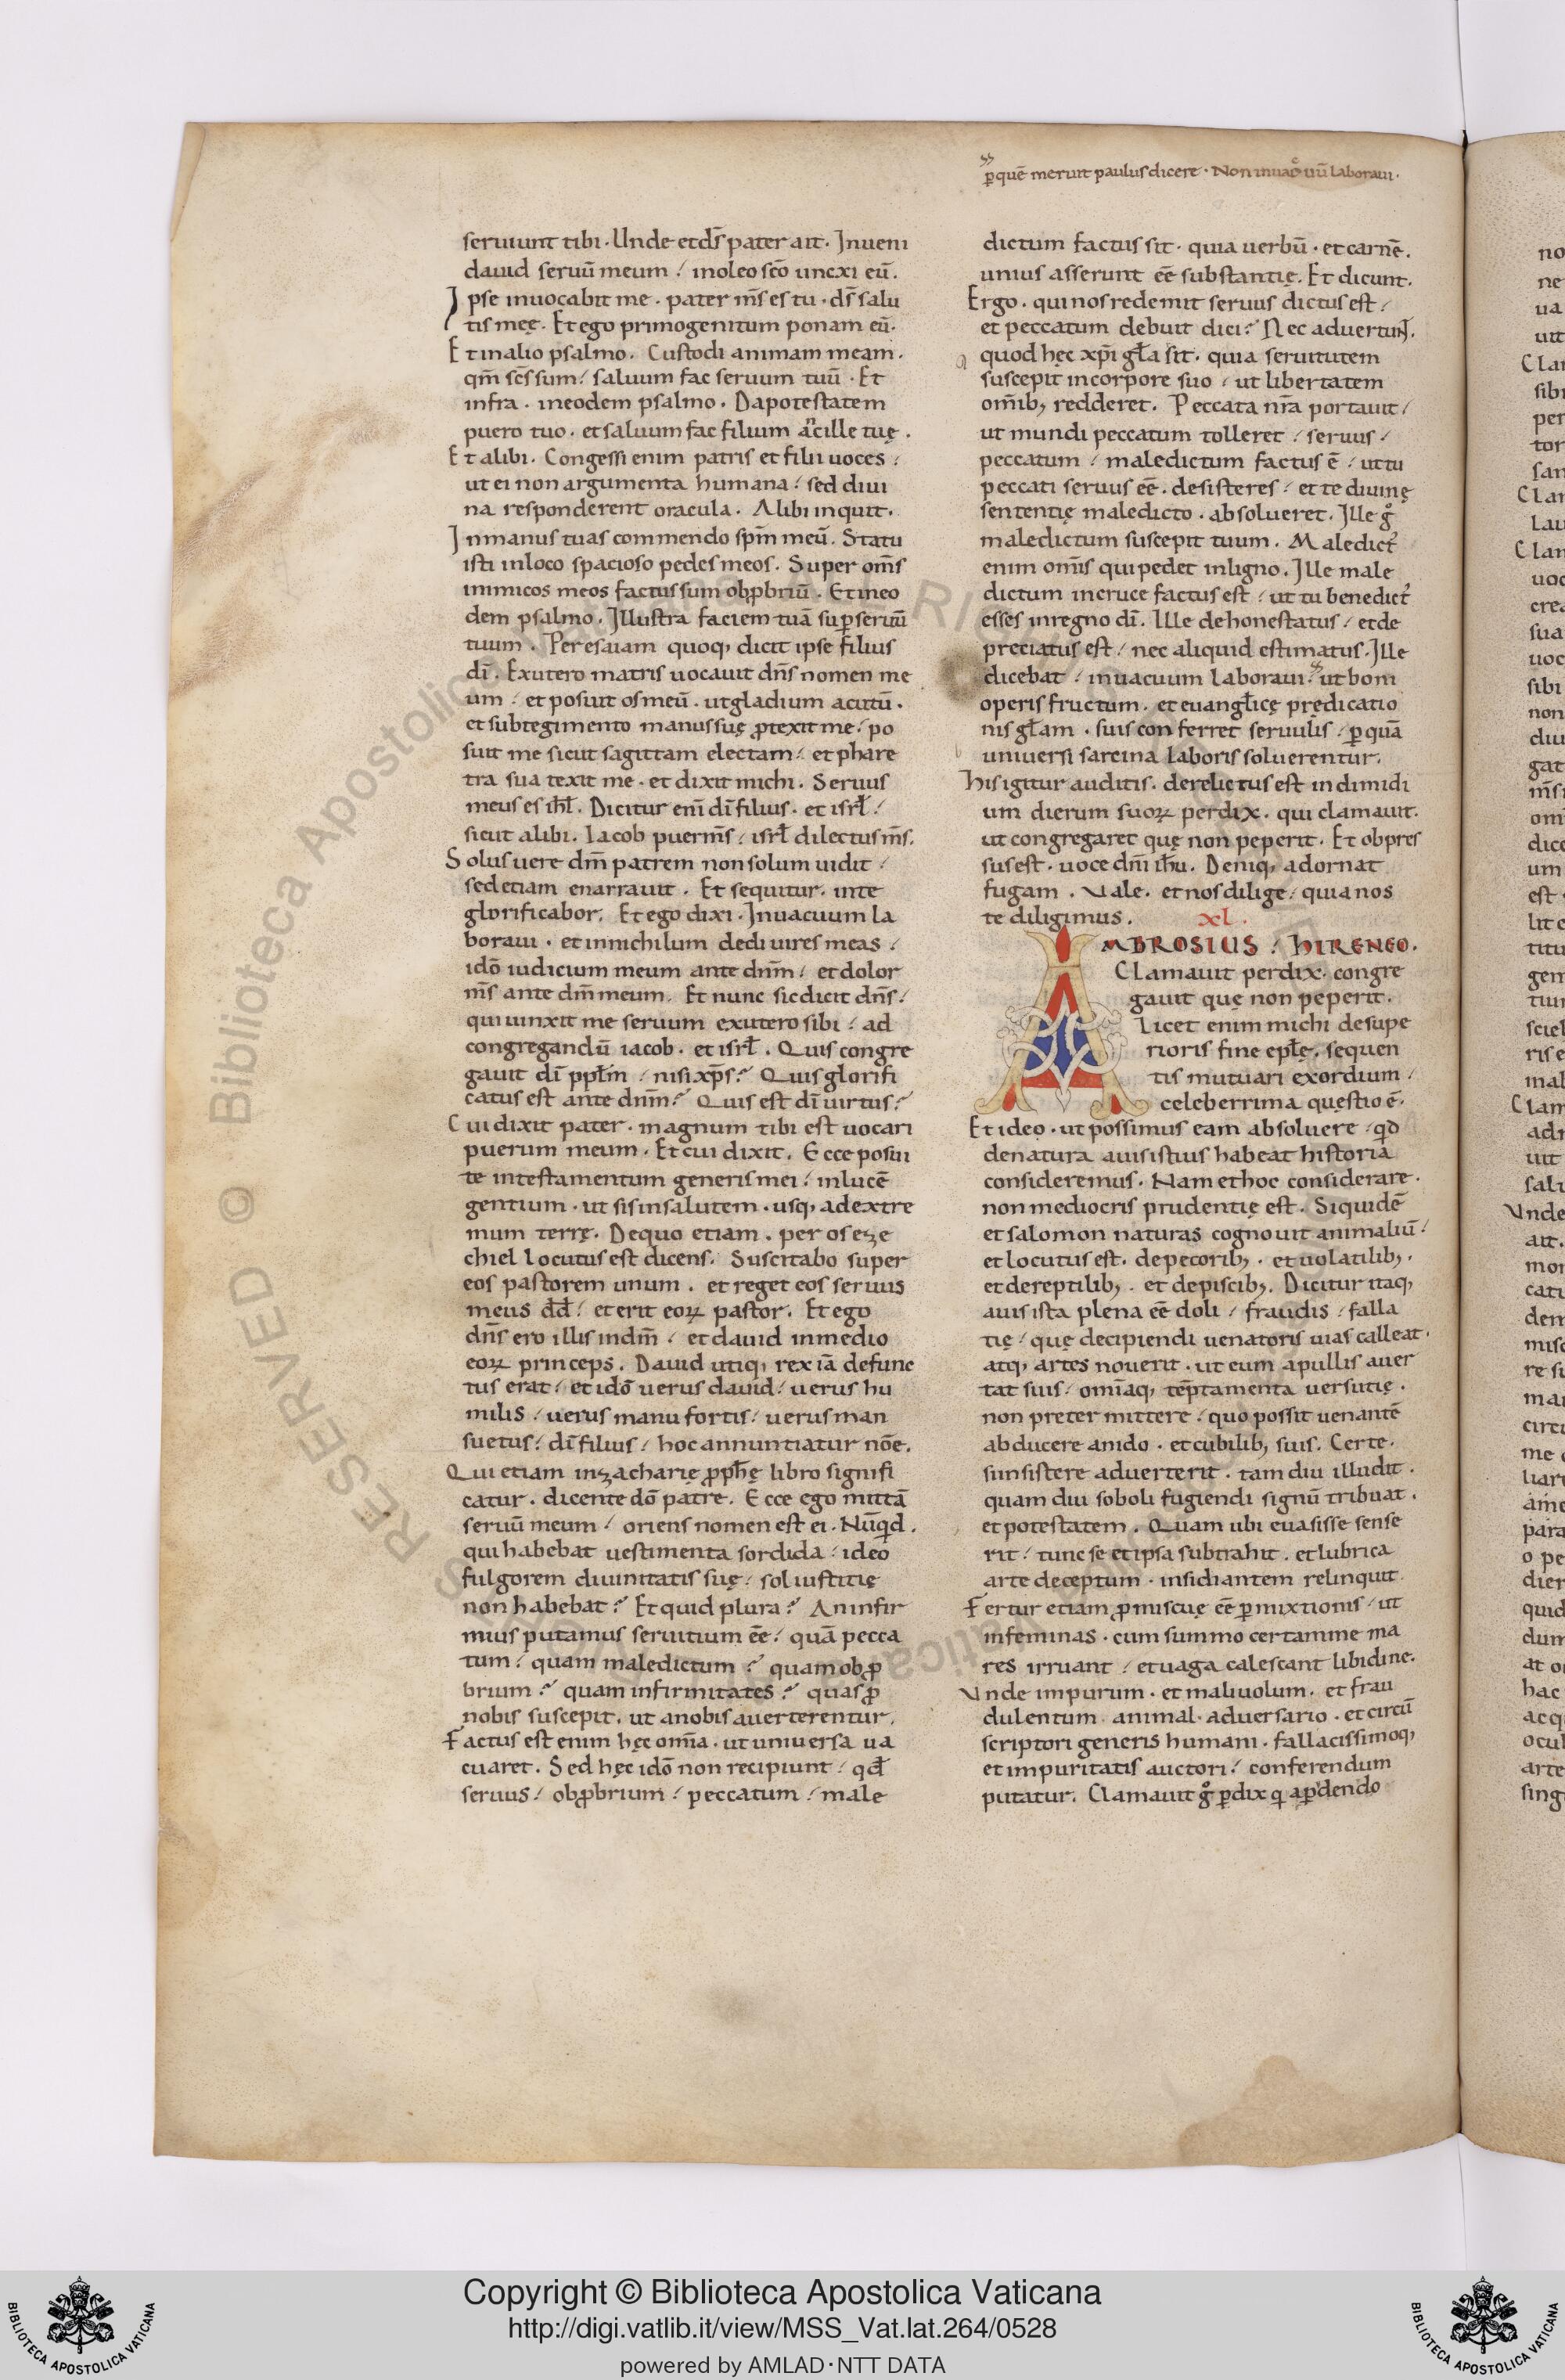 ꝑ quē meruit paulus dicere · Non in uacuū laboraui ·
seruiunt tibi · Unde et dr̄s pater ait · Inueni
dauid seruū meum / in oleo sc̄o unxi eū.
Ipse inuocabit me · pater m̄s es tu · ds̄ salu
tis meę. Et ego primogenitum ponam eū.
Et in alio psalmo. Custodi animam meam.
qm̄ sc̄s sum / saluum fac seruum tuū · Et
infra · in eodem psalmo · Da potestatem
puero tuo · et saluum fac filium ancille tuę.
Et alibi. Congessi enim patris et filii uoces /
ut ei non argumenta humana / sed diui
na responderent oracula. Alibi inquit.
In manus tuas commendo sp̄m meū. Statu
isti in loco spacioso pedes meos. Super om̄s
inimicos meos factus sum obꝓbriū. Et in eo
dem psalmo. Illustra faciem tuā suꝑ seruū
tuum. Per esaiam quoq; dicit ipse filius
dī. Ex utero matris uocauit dn̄s nomen me
um / et posuit os meū · ut gladium acutū.
et sub tegimento manus suę ꝓtexit me / po
suit me sicut sagittam electam / et phare
tra sua texit me · et dixit michi. Seruus
meus es isrl̄. Dicitur eni dī filius · et isrł /
sicut alibi. Iacob puer m̄s / isrł dilectus m̄s.
Solus uere dm̄ patrem non solum uidit /
sed etiam enarrauit. Et sequitur. in te
glorificabor. Et ego dixi. In uacuum la
boraui · et in nichilum dedi uires meas /
idō iudicium meum ante dnm̄ / et dolor
m̄s ante dm̄ meum. Et nunc sic dicit dn̄s /
qui uinxit me seruum ex utero sibi / ad
congregandū iacob · et isrł. Quis congre
gauit dī ppłm / nisi xp̄s? Quis glorifi
catus est ante dnm̄? Quis est dī uirtus?
Cui dixit pater · magnum tibi est uocari
puerum meum · Et cui dixit. Ecce posui
te in testamentum generis mei / in lucē
gentium · ut sis in salutem · usq; ad extre
mum terrę. De quo etiam · per os eze
chiel locutus est dicens. Suscitabo super
eos pastorem unum · et reget eos seruus
meus dd̄ / et erit eoꝝ pastor. Et ego
dn̄s ero illis in dm̄ / et dauid in medio
eoꝝ princeps. Dauid utiq; rex iā defunc
tus erat / et idō uerus dauid / uerus hu
milis / uerus manu fortis / uerus man
suetus / dī filius / hoc annuntiatur nōe.
Qui etiam in zacharię ꝓph̄ę libro signifi
catur · dicente dō patre. Ecce ego mittā
seruū meum / oriens nomen est ei. Nūqd.
qui habebat uestimenta sordida / ideo
fulgorem diuinitatis suę / sol iustitię
non habebat? Et quid plura? An infir
mius putamus seruitium ēe / quā pecca
tum / quam maledictum? quam obꝓ
brium? quam infirmitates? quas ꝓ
nobis suscepit · ut a nobis auerterentur.
Factus est enim hęc om̄a · ut uniuersa ua
cuaret. Sed hęc idō non recipiunt / qđ
seruus / obꝓbrium / peccatum / male
dictum factus sit · quia uerbū · et carnē.
unius asserunt ēe substantię. Et dicunt.
Ergo · qui nos redemit seruus dictus est /
et peccatum debuit dici? Nec aduertunt.
quod hęc xpī gła sit · quia seruitutem
suscepit in corpore suo / ut libertatem
omīb; redderet. Peccata nr̄a portauit /
ut mundi peccatum tolleret / seruus /
peccatum / maledictum factus ē / ut tu
peccati seruus ēe · desisteres / et te diuinę
sententię maledicto · absolueret. Ille g̊
maledictum suscepit tuum. Maledict᷒
enim om̄is qui pedet in ligno. Ille male
dictum in cruce factus est / ut tu benedict᷒
esses in regno dī. Ille dehonestatus / et de
preciatus est / nec aliquid estimatus. Ille
dicebat / in uacuum laboraui / ut boni
operis fructum · et euangłicę prędicatio
nis głam · suis conferret seruulis / ꝑ quā
uniuersi sarcina laboris soluerentur.
His igitur auditis · derelictus est in dimidi
um dierum suoꝝ perdix · qui clamauit.
ut congregaret quę non peperit. Et obpres
sus est · uoce dnī ih̄u. Deniq; adornat
fugam. Vale · et nos dilige / quia nos
te diligimus. XL.
AMBROSIUS / HIRENEO.
Clamauit perdix · congre
gauit quę non peperit.
Licet enim michi de supe
rioris fine epłę · sequen
tis mutuari exordium /
celeberrima quęstio ē.
Et ideo · ut possimus eam absoluere / qd
de natura auis istius habeat historia
consideremus. Nam et hoc considerare.
non mediocris prudentię est. Siquidē
et salomon naturas cognouit animaliū /
et locutus est · de pecorib; · et uolatilib;.
et de reptilib; · et de piscib;. Dicitur itaq;
auis ista plena ēe doli / fraudis / falla
tię / quę decipiendi uenatoris uias calleat.
atq; artes nouerit · ut eum a pullis auer
tat suis / omīaq; tēptamenta uersutię.
non preter mittere / quo possit uenantē
abducere a nido · et cubilib; suis. Certe.
si insistere aduerterit · tam diu illudit.
quam diu soboli fugiendi signū tribuat.
et potestatem. Quam ubi euasisse sense
rit / tunc se et ipsa subtrahit · et lubrica
arte deceptum · insidiantem relinquit.
Fertur etiam ꝓmiscuę ēe ꝑmixtionis / ut
in feminas · cum summo certamine ma
res irruant / et uaga calescant libidine.
Vnde impurum · et maliuolum · et frau
dulentum animal · aduersario · et circū
scriptori generis humani · fallacissimoq;
et impuritatis auctori / conferendum
putatur. Clamauit g̊ ꝑdix q a ꝑdendo
RESERVED © Biblioteca Apostolica Vaticana
Copyright © Biblioteca Apostolica Vaticana
http://digi.vatlib.it/view/MSS_Vat.lat.264/0528
powered by AMLAD·NTT DATA
BIBLIOTECA APOSTOLICA VATICANA
BIBLIOTECA APOSTOLICA VATICANA